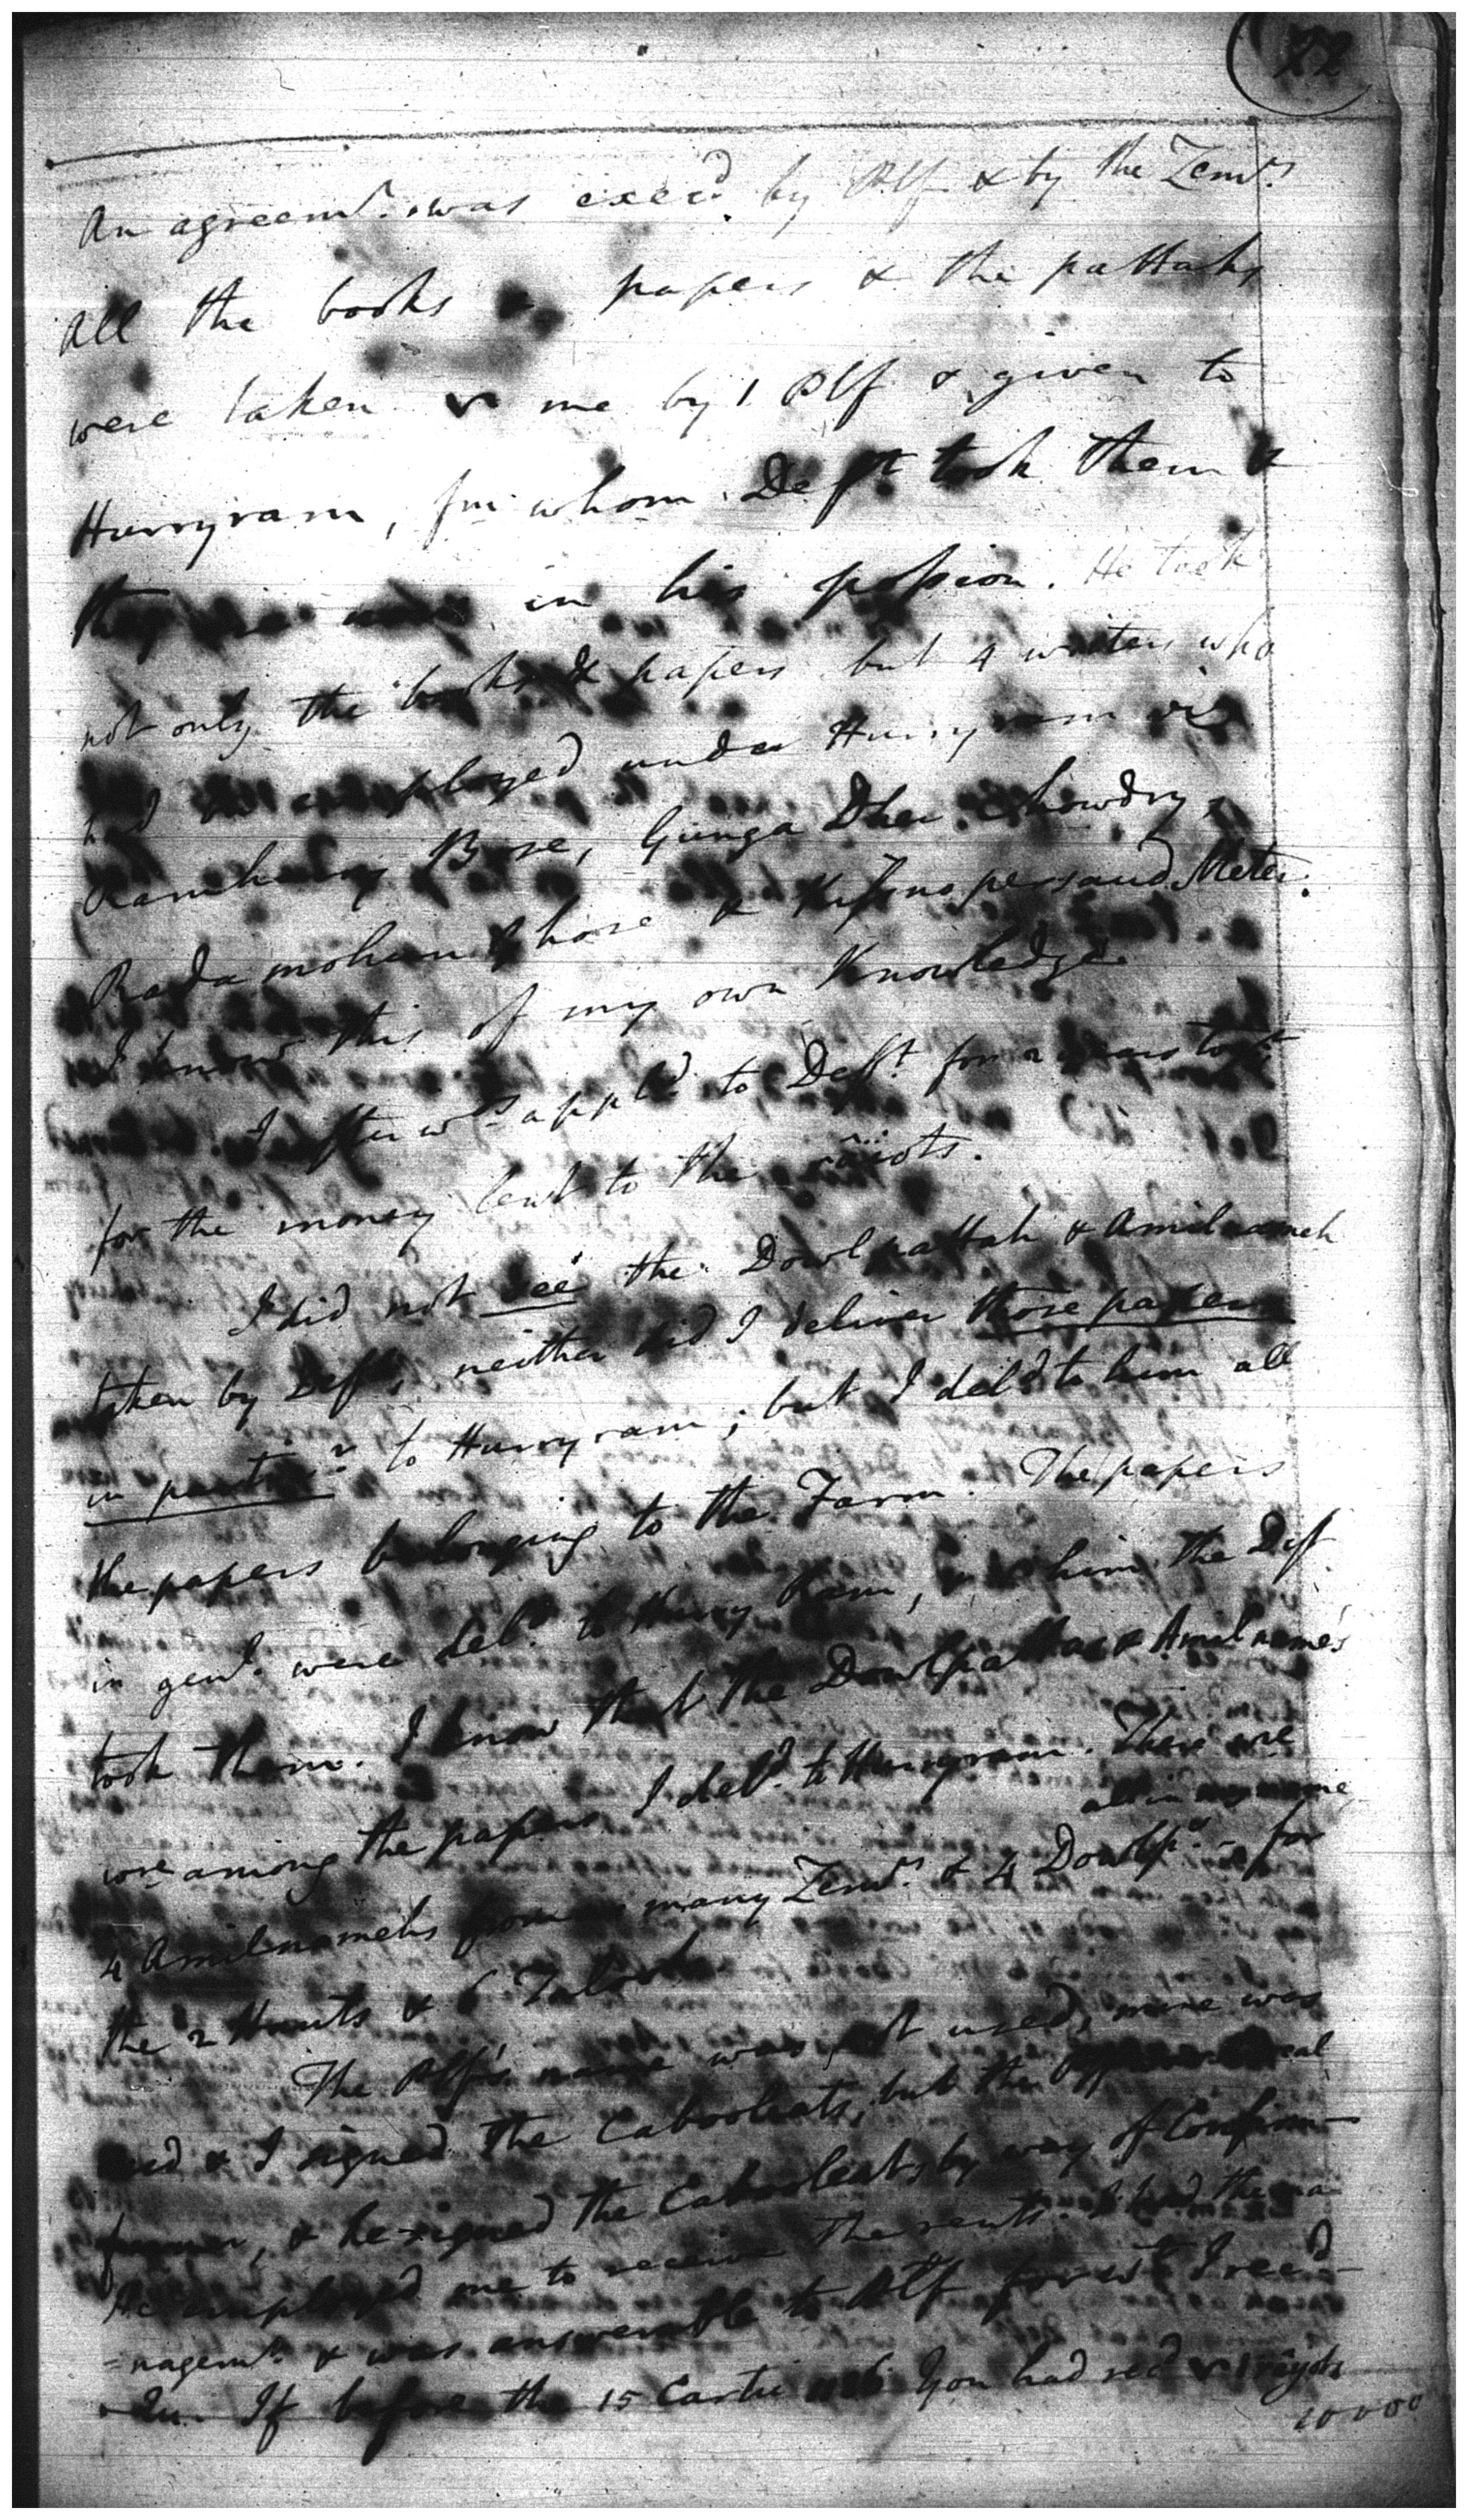 22
An agreemt. was execd. by Plf & by the Zemrs.
All the books & papers & the pattahs
were taken me by 1 Plf & given to
Hurryram, fm whom Deft took them &
they are now in his possion. He took
not only the books & papers but 4 writers who
had employed under Hurryram viz
Ramhurry Bose, Gunga Dher Chowdry,
Radamohun Ghose & Kissnopersaud Meter.
I know this of my own Knowledge.
I afterwds appld. to Deft. for 2 years
for the money lent to the raiots.
I did not see the Dowlpattah & Amilnameh
taken by Deft, neither did I deliver those papers
in particr to Hurryram; but I deld to him all
the papers belonging to the Farm. The papers
in genl. were deld. to Hurry Ram, & him the Dft
took them. I know that the Dowlpattas & Amilnames
were among the papers I deld. to Hurryram. There are
all in my name
4 Amilnamehs from many Zemrs. & 4 Dowlps. for
the 2 & 6
The Plf's name was not used, mine was
used & I signed the Cabooleats, but the real
farmer, & he signed the Cabooleats by way of Confirm-
He employed me to receive the rents. I had the ma-
=nagemt. & was answerable to Plf for wt I recd-
Qu. If before the 15 Cartic 1186 you had recd 1 rayots
10000